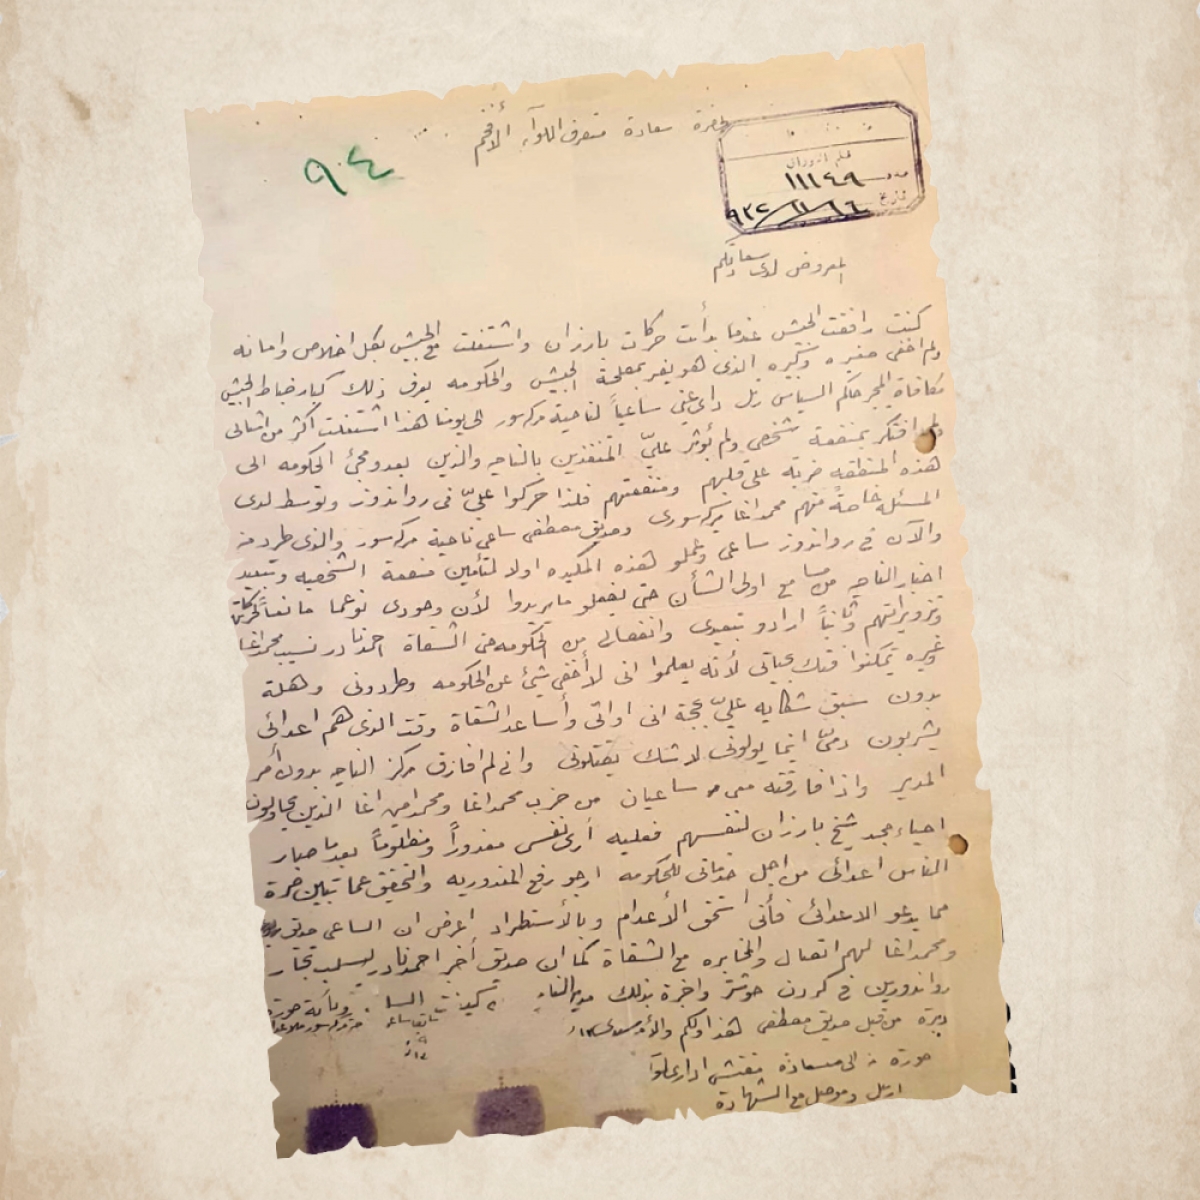 لحضرة سعادة متصرف اللوآء الأفخم
٩٤
قلم اوراق
عدد ١١١٤٩
تاريخ ١٦/١١/٩٣٢
المعروض لدى سعادتكم
كنت رافقت الجيش عندما بدأت حركات بارزان واشتغلت مع الجيش بكل اخلاص وامانه
ولم اخفى صغيره وكبيره الذى هو يضر بمصلحة الجيش والحكومه يعرف ذلك كبار ضباط الجيش
مكافاة لى حاكم السياسى ساعياً لناحية مركه سور الى يومنا هذا اشتغلت أكثر من امثالى
ولم افتكر بمنفعة شخصى ولم يؤثر عليّ المتنفذين بالناحيه والذين يعدو مجئ الحكومه الى
هذه المنطقه ضربة على قلبهم ومنفعتهم فلذا حركوا عليّ فى رواندوز وتوسط لدى
المسئله خاصةً منهم محمد اغا مركه سورى وصديق مصطفى ساعى ناحية مركه سور والذى طرد منه
والآن فى رواندوز ساعى وعملو هذه المكيده اولا لتأمين منفعة الشخصيه وتبعيد
اخبار الناحيه مع اولى الشأن حتى يفعلو ما يريدوا لأن وجودى نوعما مانعاً
وتزويراتهم وثانياً ارادو تبعيدى وانفصالى من الحكومه حتى الشقاة احمد نادر نسيب محمد اغا
وغيره تمكنوا فتك بحياتى لأنه يعلموا انى لا أخفى شيئ عن الحكومه وطردونى وهلة
بدون سبق شكايه عليّ بحجة انى اوالى وأساعد الشقاة وقت الذى هم اعدائى
يشربون دمىّ لا شك يقتلونى وانى لم افارق مركز الناحيه بدون أمر
المدير واذا فارقته معى ساعيان من حزب محمد اغا ومحمد امين اغا الذين يحاولون
احياء مجد شيخ بارزان لنفسهم فعليه أرى نفسى مغدوراً ومظلوماً بعدما صار
الناس اعدائى من اجل خدماتى للحكومه ارجو رفع المغدوريه والتحقيق عما تبين ضرة
مما يدعو الاعدائى فأنى استحق الأعدام وبالأستطراد اعرض ان الساعى صديق
ومحمد اغا لهم اتصال والمخابره مع الشقاة كما ان صديق أخبر احمد نادر ليسلب تجار
رواندوزيين فى كردن واخبرة بذلك مدير الناحيه
من قبل صديق مصطفى هذا ولكم والأمر سيدى
صورة منه الى سعادة مفتش ادارى لوآ
اربل وموصل مع الشهادة